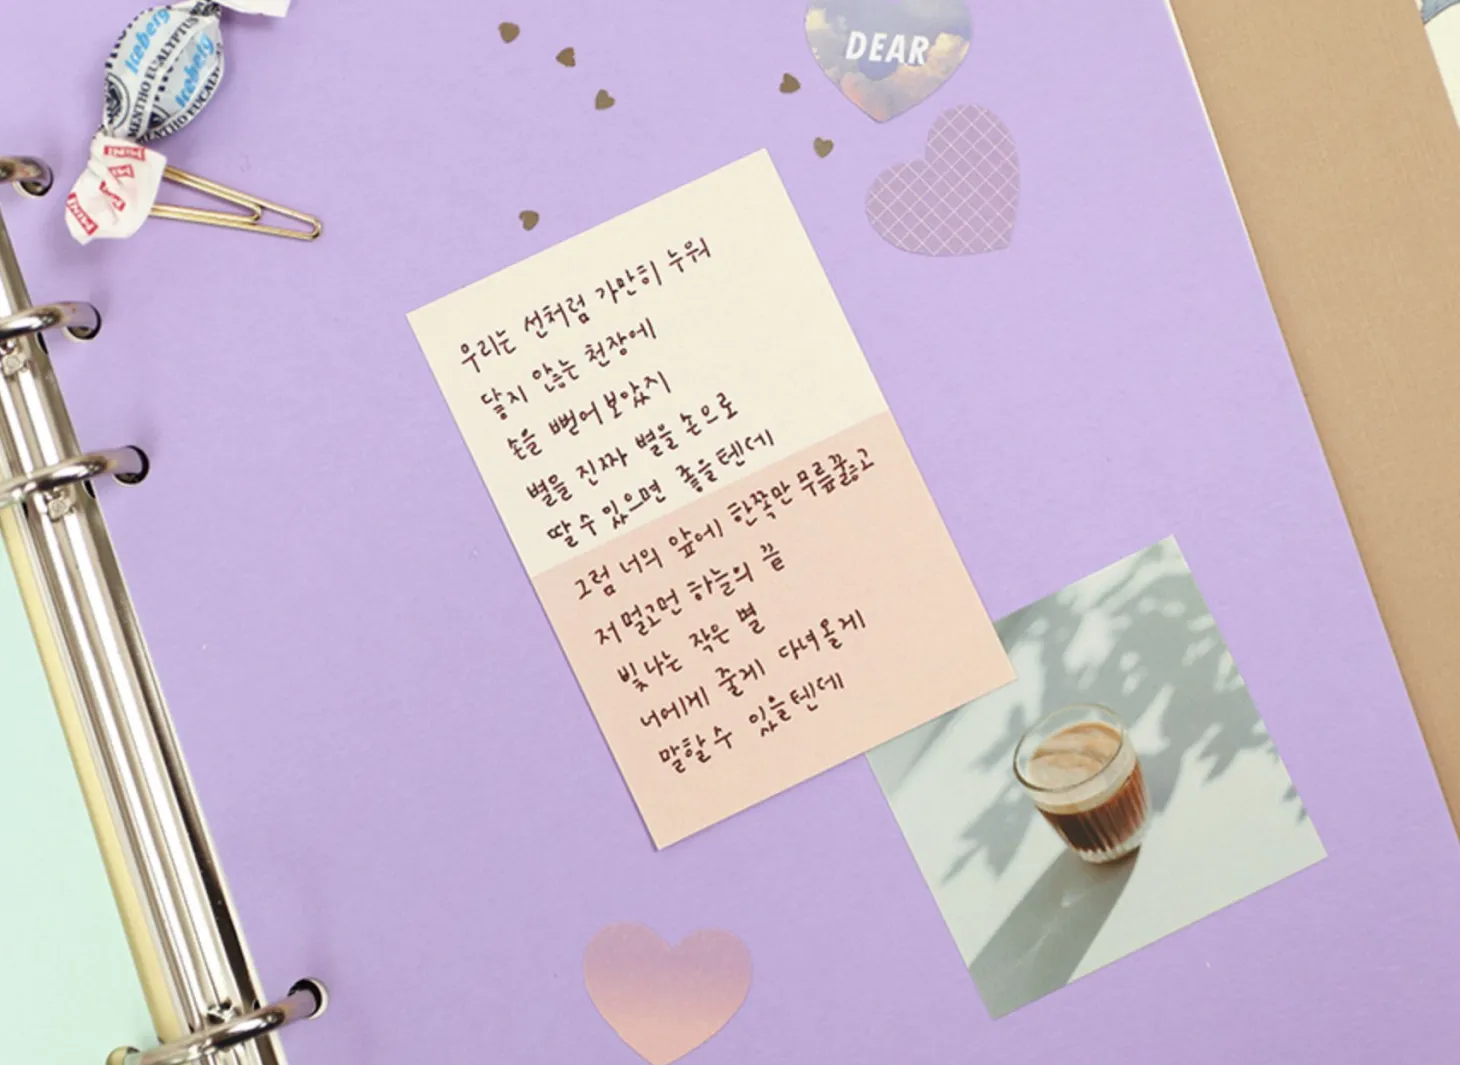 Iceberg
MENTHO EUCALYPTUS
Iceberg
MENTHO EUCAL
MINI
MINI
DEAR
우리는 선처럼 가만히 누워
닿지 않는 천장에
손을 뻗어 보았지
별을 진짜 별을 손으로
딸 수 있으면 좋을텐데
그럼 너의 앞에 한쪽만 무릎꿇고
저 멀고먼 하늘의 끝
빛나는 작은 별
너에게 줄게 다녀올게
말할 수 있을텐데